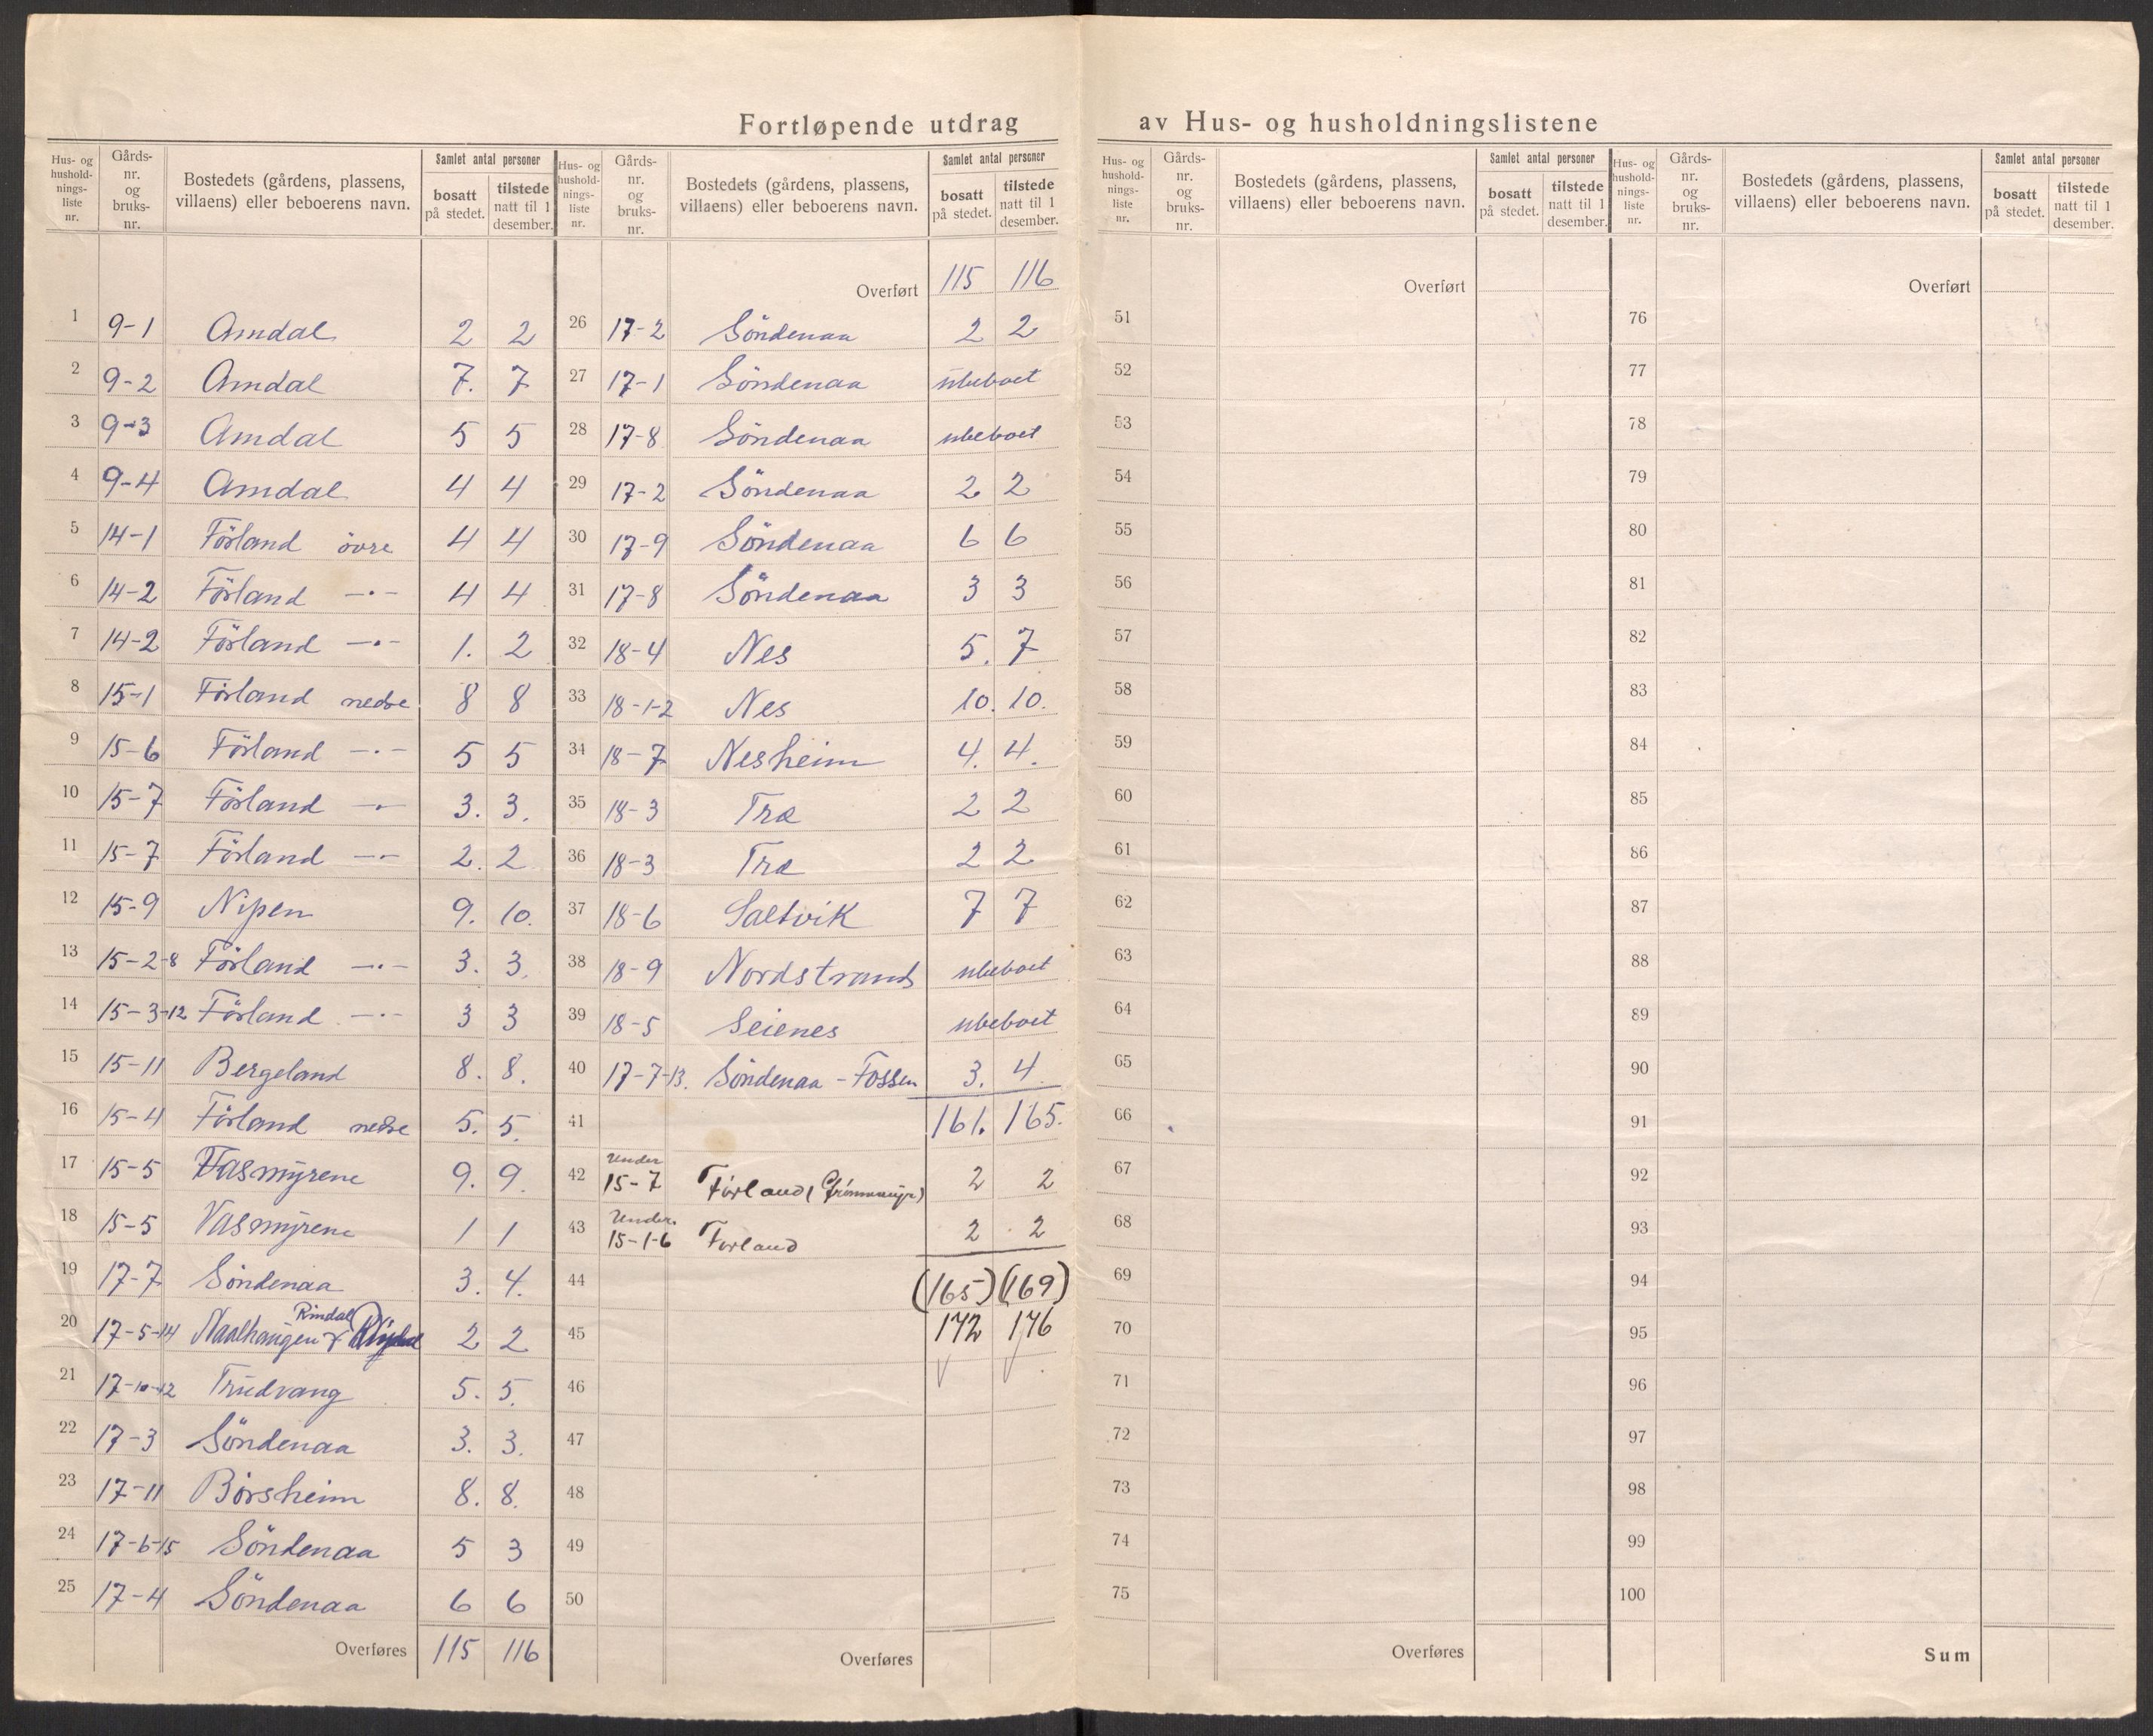 Fortløpende utdrag av Hus- og husholdningslistene
Hus- og hushold-nings-liste nr. Gårds-nr. og bruks-nr. Bostedets (gårdens, plassens, villaens) eller beboerens navn. Samlet antal personer bosatt på stedet. tilstede natt til 1 desember.
1 9-1 Amdal 2 2
2 9-2 Amdal 7. 7
3 9-3 Amdal 5 5
4 9-4 Amdal 4 4
5 14-1 Förland övre 4 4
6 14-2 Förland —·— 4 4
7 14-2 Förland —·— 1. 2
8 15-1 Förland nedre 8 8
9 15-6 Förland —·— 5 5
10 15-7 Förland —·— 3. 3.
11 15-7 Förland —·— 2. 2
12 15-9 Nipen 9. 10.
13 15-2-8 Förland —·— 3. 3.
14 15-3-12 Förland —·— 3 3
15 15-11 Bergeland 8. 8.
16 15-4 Förland nedre 5. 5.
17 15-5 Vasmyrene 9. 9.
18 15-5 Vasmyrene 1 1
19 17-7 Söndenaa 3. 4.
Rindal
20 17-5-14 Naalhaugen & 2 2
21 17-10-12 Trudvang 5. 5.
22 17-3 Söndenaa 3. 3.
23 17-11 Börsheim 8. 8.
24 17-6-15 Söndenaa 5 3
25 17-4 Söndenaa 6 6
Overføres 115 116
Hus- og hushold-nings-liste nr. Gårds-nr. og bruks-nr. Bostedets (gårdens, plassens, villaens) eller beboerens navn. Samlet antal personer bosatt på stedet. tilstede natt til 1 desember.
Overført 115 116
26 17-2 Söndenaa 2 2
27 17-1 Söndenaa ubeboet
28 17-8 Söndenaa ubeboet
29 17-2 Söndenaa 2 2
30 17-9 Söndenaa 6 6
31 17-8 Söndenaa 3 3
32 18-4 Nes 5. 7
33 18-1-2 Nes 10. 10.
34 18-7 Nesheim 4. 4.
35 18-3 Træ 2 2
36 18-3 Træ 2 2
37 18-6 Saltvik 7 7
38 18-9 Nordstrand ubeboet
39 18-5 Seienes ubeboet
40 17-7-13. Söndenaa - Fossen 3. 4
41 161. 165.
Under
42 15-7 Förland 2 2
Under
43 15-1-6 Förland 2 2
44 (165) (169)
45 172 176
46
47
48
49
50
Overføres
Hus- og hushold-nings-liste nr. Gårds-nr. og bruks-nr. Bostedets (gårdens, plassens, villaens) eller beboerens navn. Samlet antal personer bosatt på stedet. tilstede natt til 1 desember.
Overført
51
52
53
54
55
56
57
58
59
60
61
62
63
64
65
66
67
68
69
70
71
72
73
74
75
Overføres
Hus- og hushold-nings-liste nr. Gårds-nr. og bruks-nr. Bostedets (gårdens, plassens, villaens) eller beboerens navn. Samlet antal personer bosatt på stedet. tilstede natt til 1 desember.
Overført
76
77
78
79
80
81
82
83
84
85
86
87
88
89
90
91
92
93
94
95
96
97
98
99
100
Sum